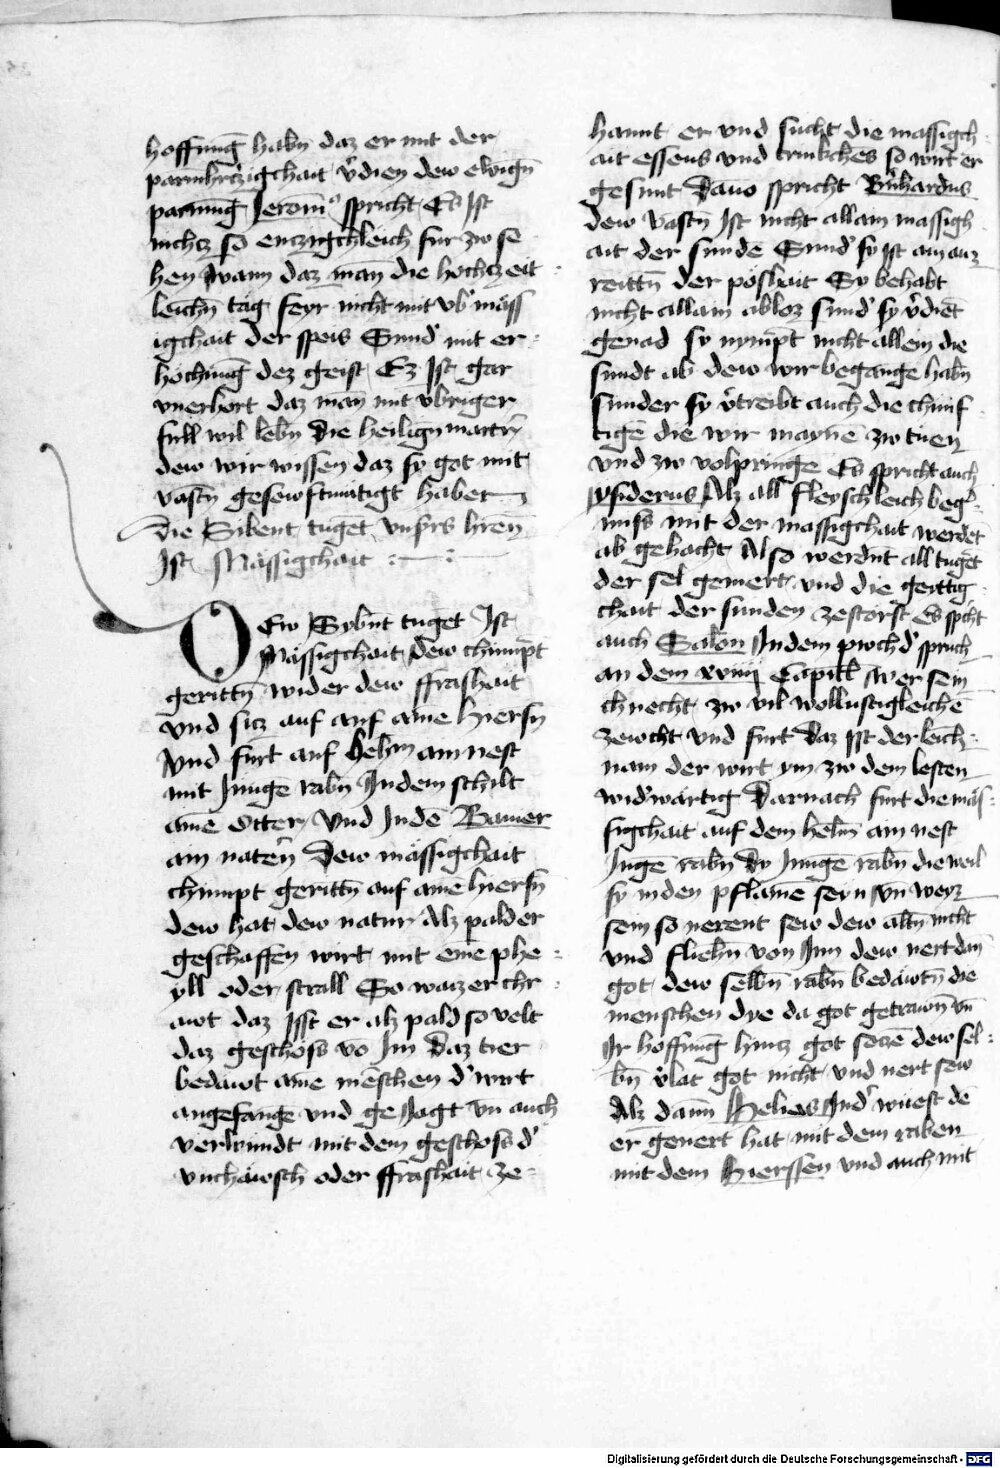 hoffnūg habn̄ daz er mit der
parmhrczigchait v̓dien dew ewign̄
parmūg Jeronim9 spricht Es Ist
nichcz so enczigchleich fur zw se
hen wann daz man die hochczeit
leichn̄ tag feyr nicht mit vb̓ mäss
igchait der speis Sund̓ mit er
höchung dez geist Ez Ist gar
vnerhort daz man mit vbriger
full wil lebn̄ die heilign martr̄
dew wir wissen daz sy got mit
vastn̄ gesewftmütigt haben
Die Sibent tuget vnsrs hren̄
Ist Mässigchait
Dew Sybn̄t tuget Ist
Mässigchait dew chumpt
gerittn̄ wider dew ffrashait
vnd sicz auf auf aine hiersn̄
vnd furt auf helm ain nest
mit Jungē rabn̄ Jn dem schilt
aine Otter Vnd Jndē Banier
ain natern̄ Dew mässigchait
chumpt gerittn̄ auf aine hiersn̄
dew hat dew natur Alz pald er
geschaffen wirt mit eine phe
yll oder strall So waiz er chr
awt daz Isst er alz pald so velt
daz geschöss vō Jm Daz tier
bedäwt aine mēschen d̓ wirt
angefangē vnd geJagt vn̄ auch
verwundt mit dem geschoss d̓
vnchäwsch oder ffrashait ze
hannt er vnd sücht die mässigch
ait essens vnd trinkches so wirt er
gesunt Dauō spricht Bn̄hardus
dew vastn̄ Ist nicht allain mässigh
ait der sunde Sund̓ sy Ist ain auz
reittn̄ der poshait Sy behabt
nicht allain abloz sund̓ sy v̓diēt
genad sy nympt nicht allein die
sundt ab dew wir begangē habn̄
sunder sy v̓treibt auch die chünf
tigē die wir maynē zw tuen
vnd zw volpringē Es spricht auch
ysiderus Alz all fleyschleich beg̓
nuss mit der massigchait werdēt
ab gehacht Also werdnt all tugēt
der sel gemert vnd die geittig
chait der sunden zestorst Es spcht
auch Salon̄ Jn dem puch d̓ spruch
an dem xviiij Capitl wer sein
chnecht zw vil wollustigleichē
zewcht vnd furt Daz Ist der leich
nam der wirt ym zw dem lesten
wid̓wärtig Darnach furt die mäs
sigchait auf dem helm ain nest
Jungē rabn̄ Dy Jungē rabn̄ die weil
sy in den pflame seyn vn̄ weyz
sein so nerent sew dew altn̄ nicht
vnd fliehn̄ von Jnn dew nert dan̄
got dew selbn̄ rabn̄ bedäwtn̄ die
menschen dye da got getrawn̄ vn̄
Jr hoffnūg hincz got seczē dew sel
bn̄ v̓lat got nicht vnd nert sew
Alz dann Helias Jnd̓ wuest dē
er gēnert hat mit dem raben
mit dem Hierssen vnd auch mit
Digitalisierung gefördert durch die Deutsche Forschungsgemeinschaft - DFG